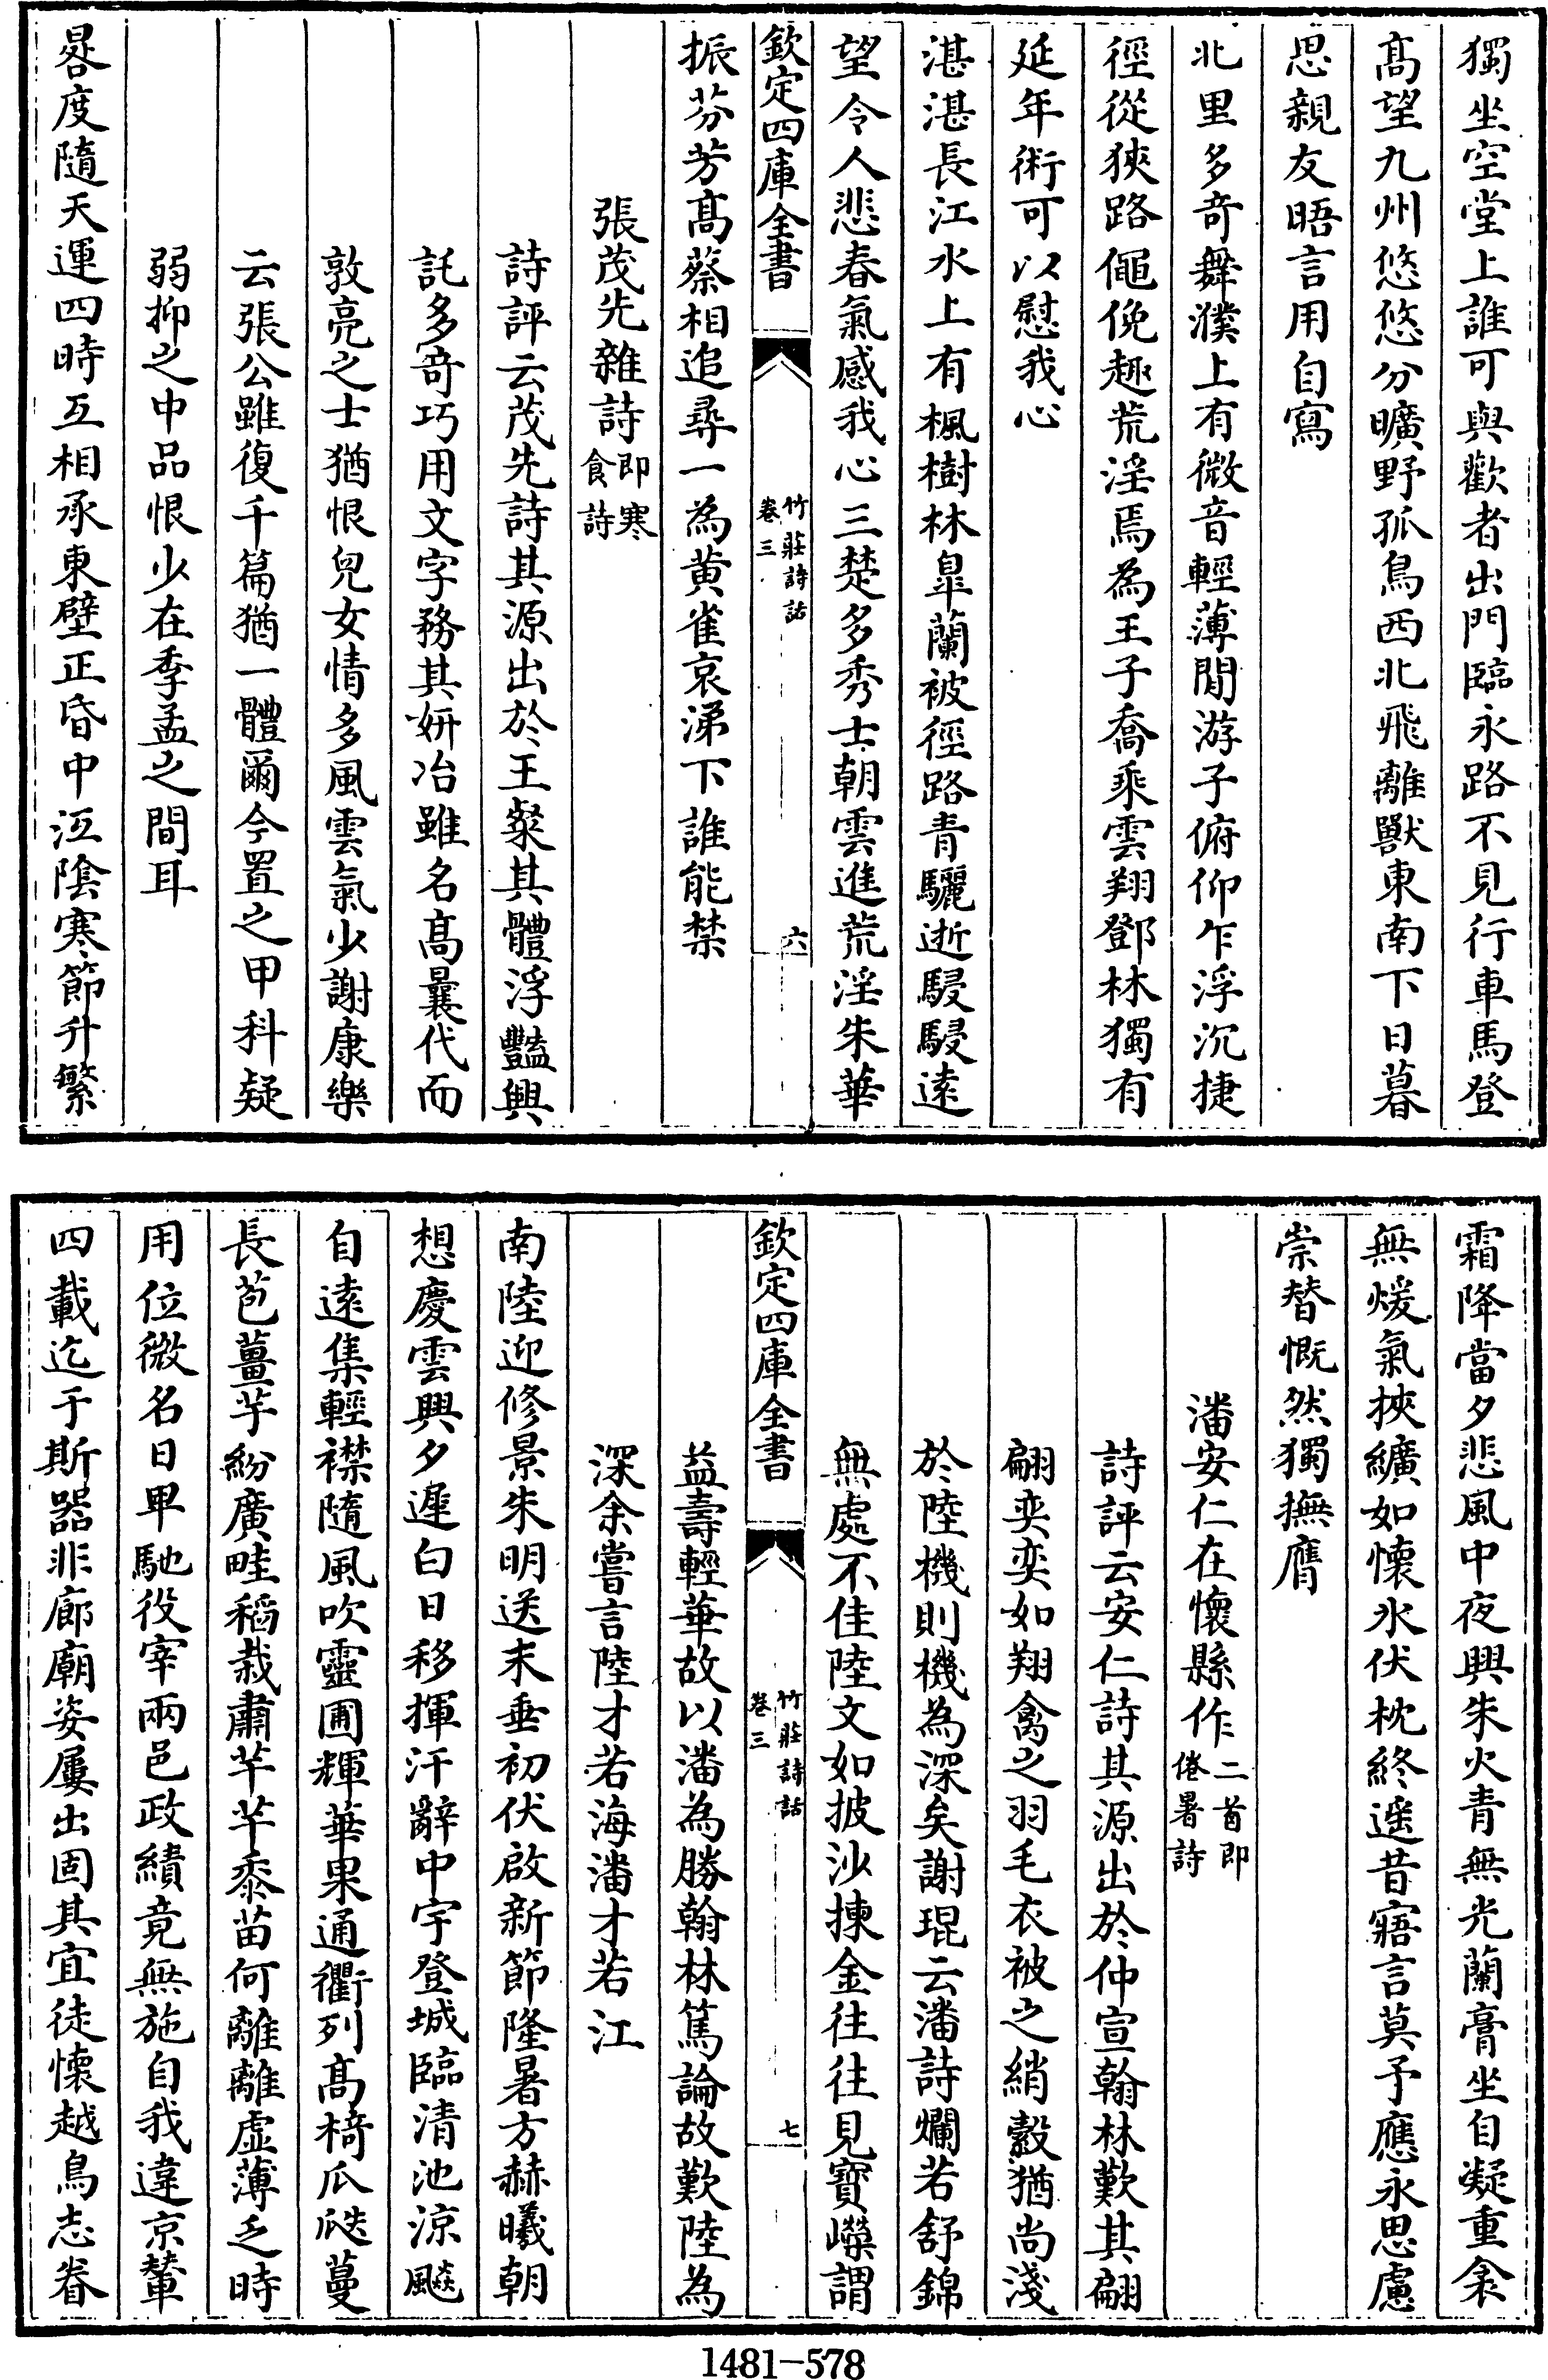 獨坐空堂上誰可與歡者出門臨永路不見行車馬登
髙望九州悠悠分曠野孤鳥西北飛離獸東南下日暮
思親友晤言用自寫
北里多奇舞濮上有微音輕薄閒游子俯仰乍浮沉捷
徑從狹路僶俛趣荒淫焉為王子喬乘雲翔鄧林獨有
延年術可以慰我心
湛湛長江水上有楓樹林臯蘭被徑路青驪逝駸駸逺
望令人悲春氣感我心三楚多秀士朝雲進荒淫朱華
欽定四庫全書
竹莊詩話
卷三
六
振芬芳髙蔡相追尋一為黄雀哀涕下誰能禁
張茂先雜詩即寒
食詩
詩評云茂先詩其源出於王粲其體浮豔興
託多竒巧用文字務其妍冶雖名髙曩代而
敦亮之士猶恨兒女情多風雲氣少謝康樂
云張公雖復千篇猶一體爾今置之甲科疑
弱抑之中品恨少在季孟之間耳
晷度隨天運四時互相承東壁正昏中沍陰寒節升繁
霜降當夕悲風中夜興朱火青無光蘭膏坐自凝重衾
無煖氣挾纊如懷氷伏枕終遥昔寤言莫予應永思慮
崇替慨然獨撫膺
潘安仁在懷縣作二首即
倦暑詩
詩評云安仁詩其源出於仲宣翰林歎其翩
翩奕奕如翔禽之羽毛衣被之綃縠猶尚淺
於陸機則機為深矣謝琨云潘詩爛若舒錦
無處不佳陸文如披沙揀金往往見寳嶸謂
欽定四庫全書
竹莊詩話
卷三
七
益壽輕華故以潘為勝翰林篤論故歎陸為
深余嘗言陸才若海潘才若江
南陸迎修景朱明送末垂初伏啟新節隆暑方赫曦朝
想慶雲興夕遲白日移揮汗辭中宇登城臨清池涼飇
自逺集輕襟隨風吹靈圃輝華果通衢列髙椅瓜瓞蔓
長苞薑芋紛廣畦稻栽肅芊芊黍苗何離離虚薄乏時
用位微名日卑馳役宰兩邑政績竟無施自我違京輦
四載迄于斯器非廊廟姿屢出固其宜徒懷越鳥志眷
1481-578